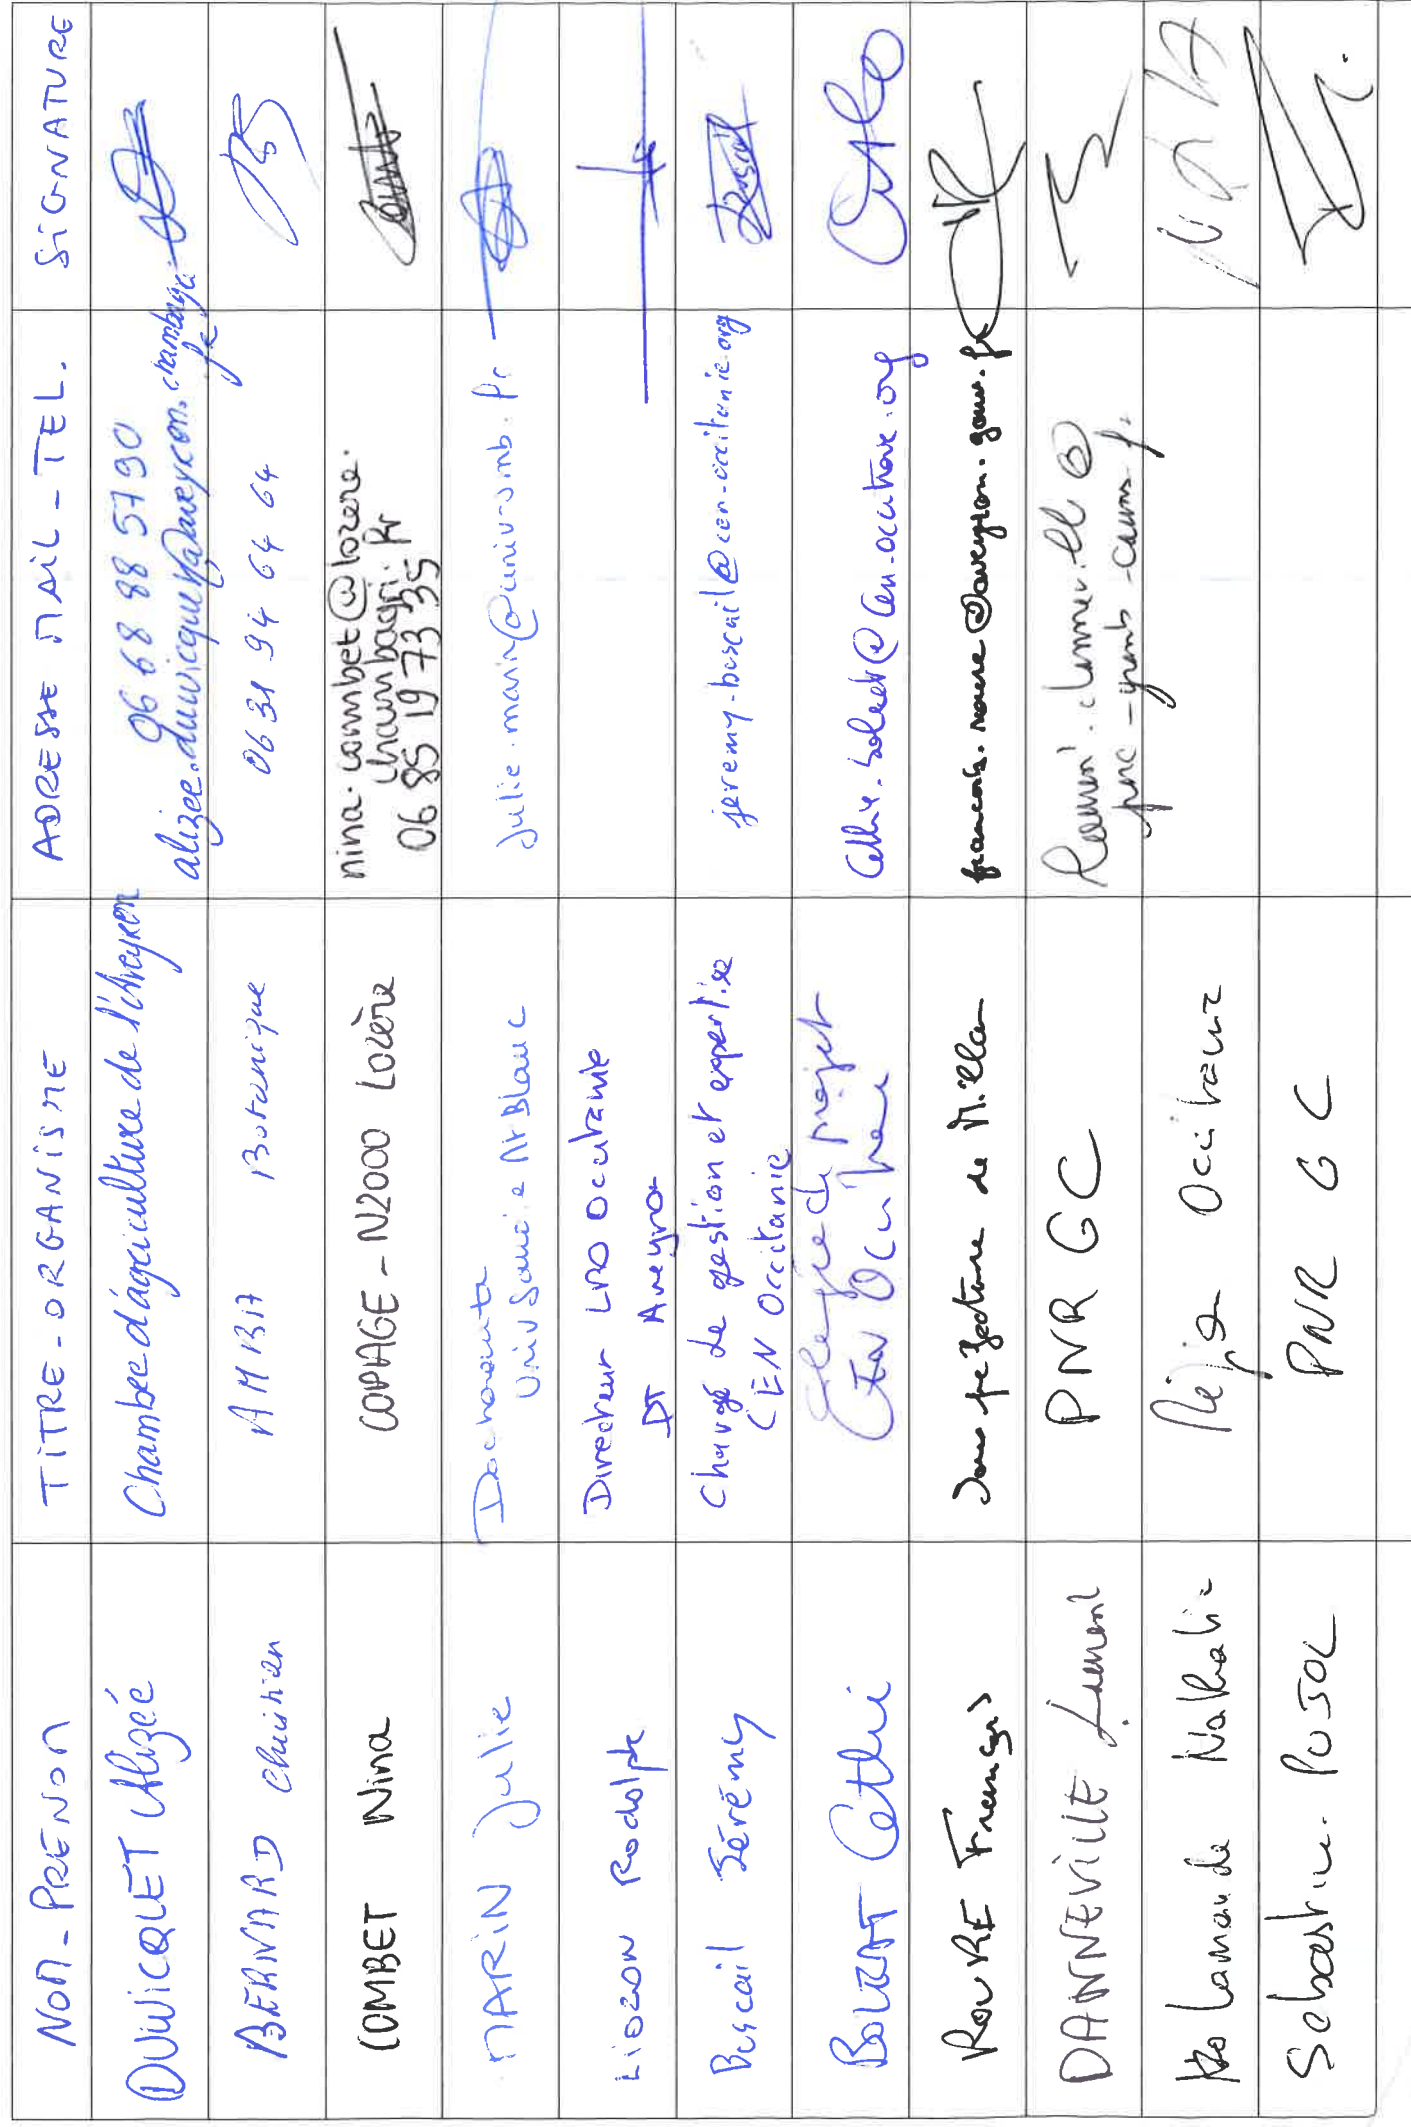 NOM - PRENOM TITRE - ORGANISME ADRESSE MAIL - TEL. SIGNATURE
DUWICQUET Alizée Chambre d'agriculture de l'Aveyron 06 68 88 57 90
alizee.duwicquet@aveyron.chambagri.fr
BERNARD Christian AMBA Botanique 06 31 94 64 64
COMBET Nina COPAGE - N2000 Lozère nina.combet@lozere.
chambagri.fr
06 85 19 73 35
MARIN Julie Doctorante
Univ Savoie Mt Blanc julie.marin@univ-smb.fr
Liozon Rodolphe Directeur LPO Occitanie
DT Aveyron
Buscail Jérémy Chargé de gestion et expertise
CEN Occitanie jeremy.buscail@cen-occitanie.org
BOLEAT Cathie Chargée de projet
CEN Occitanie cathie.boleat@cen-occitanie.org
ROURE François Sous préfecture de Millau francois.roure@aveyron.gouv.fr
DANNEVILLE Laurent PNR GC
parc-grands-causses.fr
Lamande Nathalie Région Occitanie
Sébastien PUJOL PNR GC